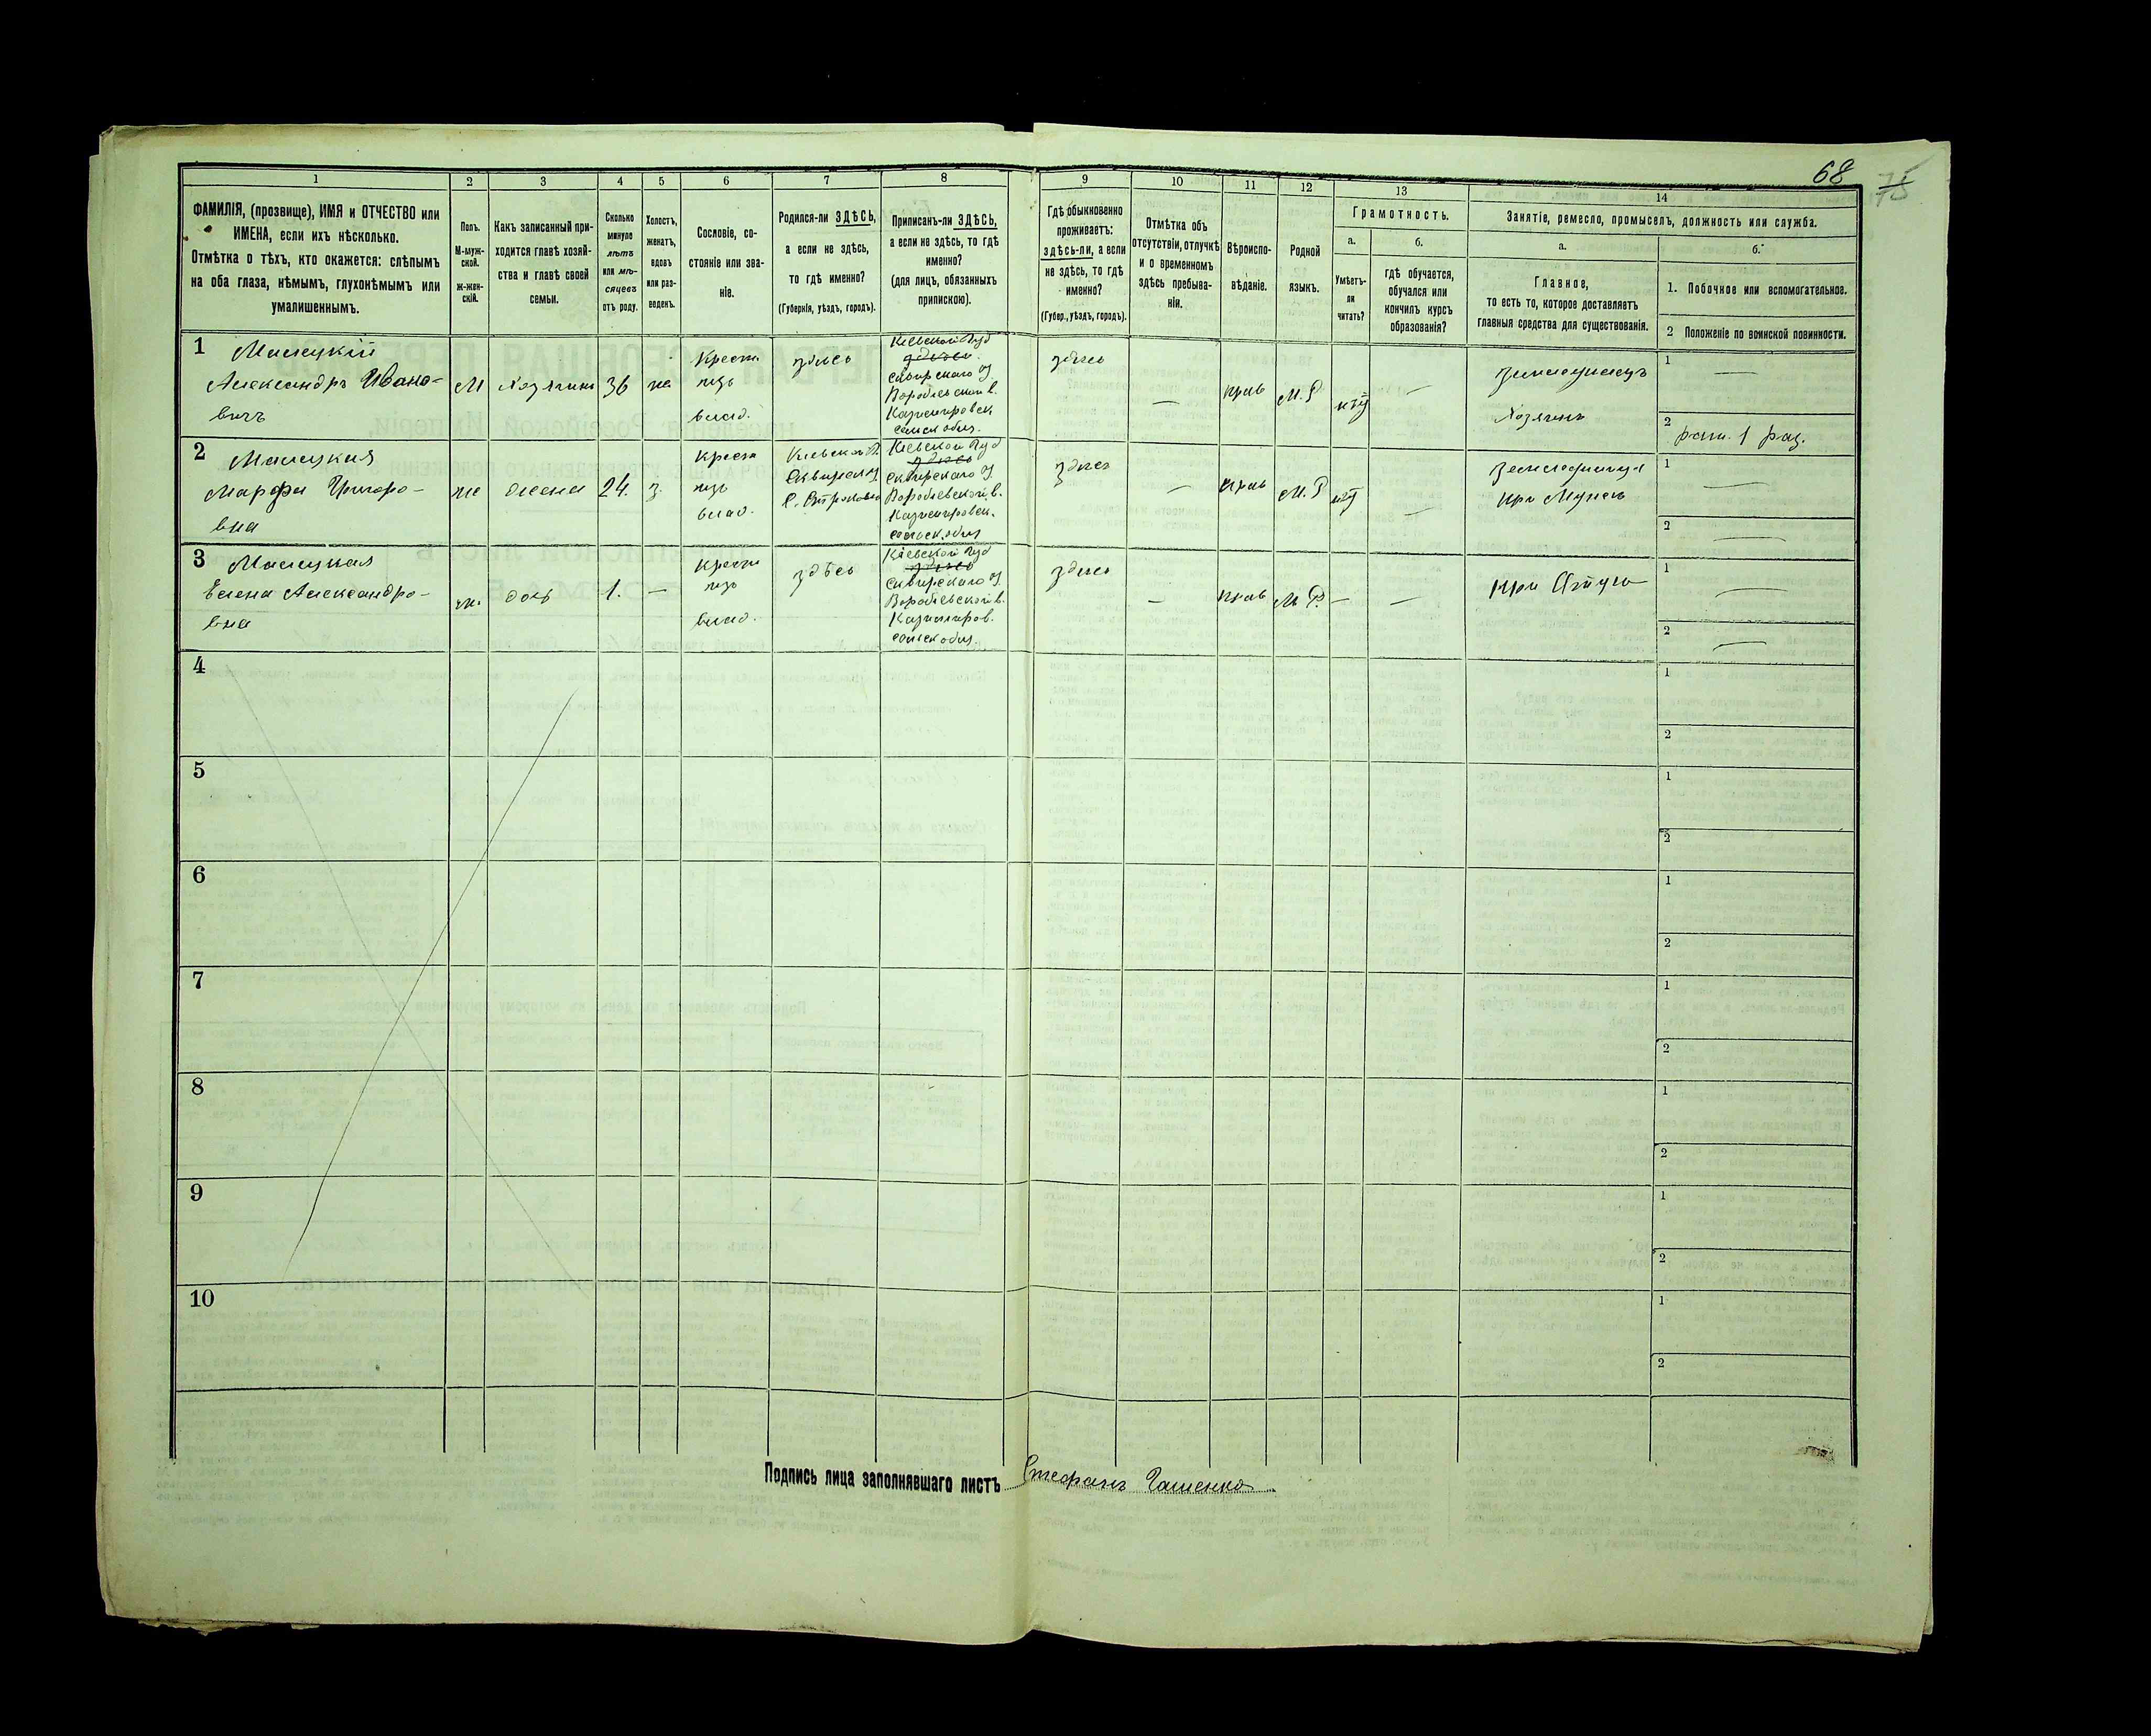 68
75
1
2
3
4
5
6
7
8
9
10
11
12
13
14
ФАМИЛІЯ, (прозвище), ИМЯ и ОТЧЕСТВО или
ИМЕНА, если ихъ нѣсколько.
Отмѣтка о тѣхъ, кто окажется: слѣпымъ
на оба глаза, нѣмымъ, глухонѣмымъ или
умалишеннымъ.
Полъ.
М-муж-
ской.
ж-жен-
скій.
Какъ записанный при-
ходится главѣ хозяй-
ства и главѣ своей
семьи.
Сколько
минуло
лѣтъ
или мѣ-
сяцевъ
отъ роду.
Холостъ,
женатъ,
вдовъ
или раз-
веденъ.
Сословіе, со-
стояніе или зва-
ніе.
Родился-ли ЗДѢСЬ,
а если не здѣсь,
то гдѣ именно?
(Губернія, уѣздъ, городъ).
Приписанъ-ли ЗДѢСЬ,
а если не здѣсь, то гдѣ
именно?
(для лицъ, обязанныхъ
припискою).
Гдѣ обыкновенно
проживаетъ:
здѣсь-ли, а если
не здѣсь, то гдѣ
именно?
(Губер., уѣздъ, городъ).
Отмѣтка объ
отсутствіи, отлучкѣ
и о временномъ
здѣсь пребыва-
ніи.
Вѣроиспо-
вѣданіе.
Родной
языкъ.
Грамотность.
а.
Умѣетъ-
ли
читать?
б.
гдѣ обучается,
обучался или
кончилъ курсъ
образованія?
Занятіе, ремесло, промыселъ, должность или служба.
а.
Главное,
то есть то, которое доставляетъ
главныя средства для существованія.
б.
1. Побочное или вспомогательное.
2 Положеніе по воинской повинности.
1
Александръ Ивано-
вичъ
М
Хозяинъ
36
же
Крестя
изъ
влад.
здѣсь
Кіевской Губ
здѣсь
Сквирскаго у
Воробіевской в.
Казимировск.
сельск общ.
здѣсь
—
прав
М. Р.
нѣтъ
—
Земледѣлецъ
Хозяинъ
1 —
2 рат. 1 раз.
2
Марфа Григоро-
вна
же
жена
24.
з.
Крестя
изъ
влад.
Кіевской Г.
Сквирск у
Кіевской Губ
здѣсь
Сквирскаго у
Воробіевской в.
Казимировск.
сельск. общ
здѣсь
—
прав
М. Р
нѣтъ
—
Земледѣлица
при Мужѣ
1 —
2 —
3
Елена Александро-
вна
ж.
дочь
1.
—
Крестя
изъ
влад.
здѣсь
Кіевской Губ
здѣсь
Сквирскаго у
Воробіевской в.
Казимиров.
сельск общ.
здѣсь
—
прав
М. Р.
—
—
при Отцѣ
1 —
2 —
4
1
2
5
1
2
6
1
2
7
1
2
8
1
2
9
1
2
10
1
2
Подпись лица заполнявшаго листъ Стефанъ